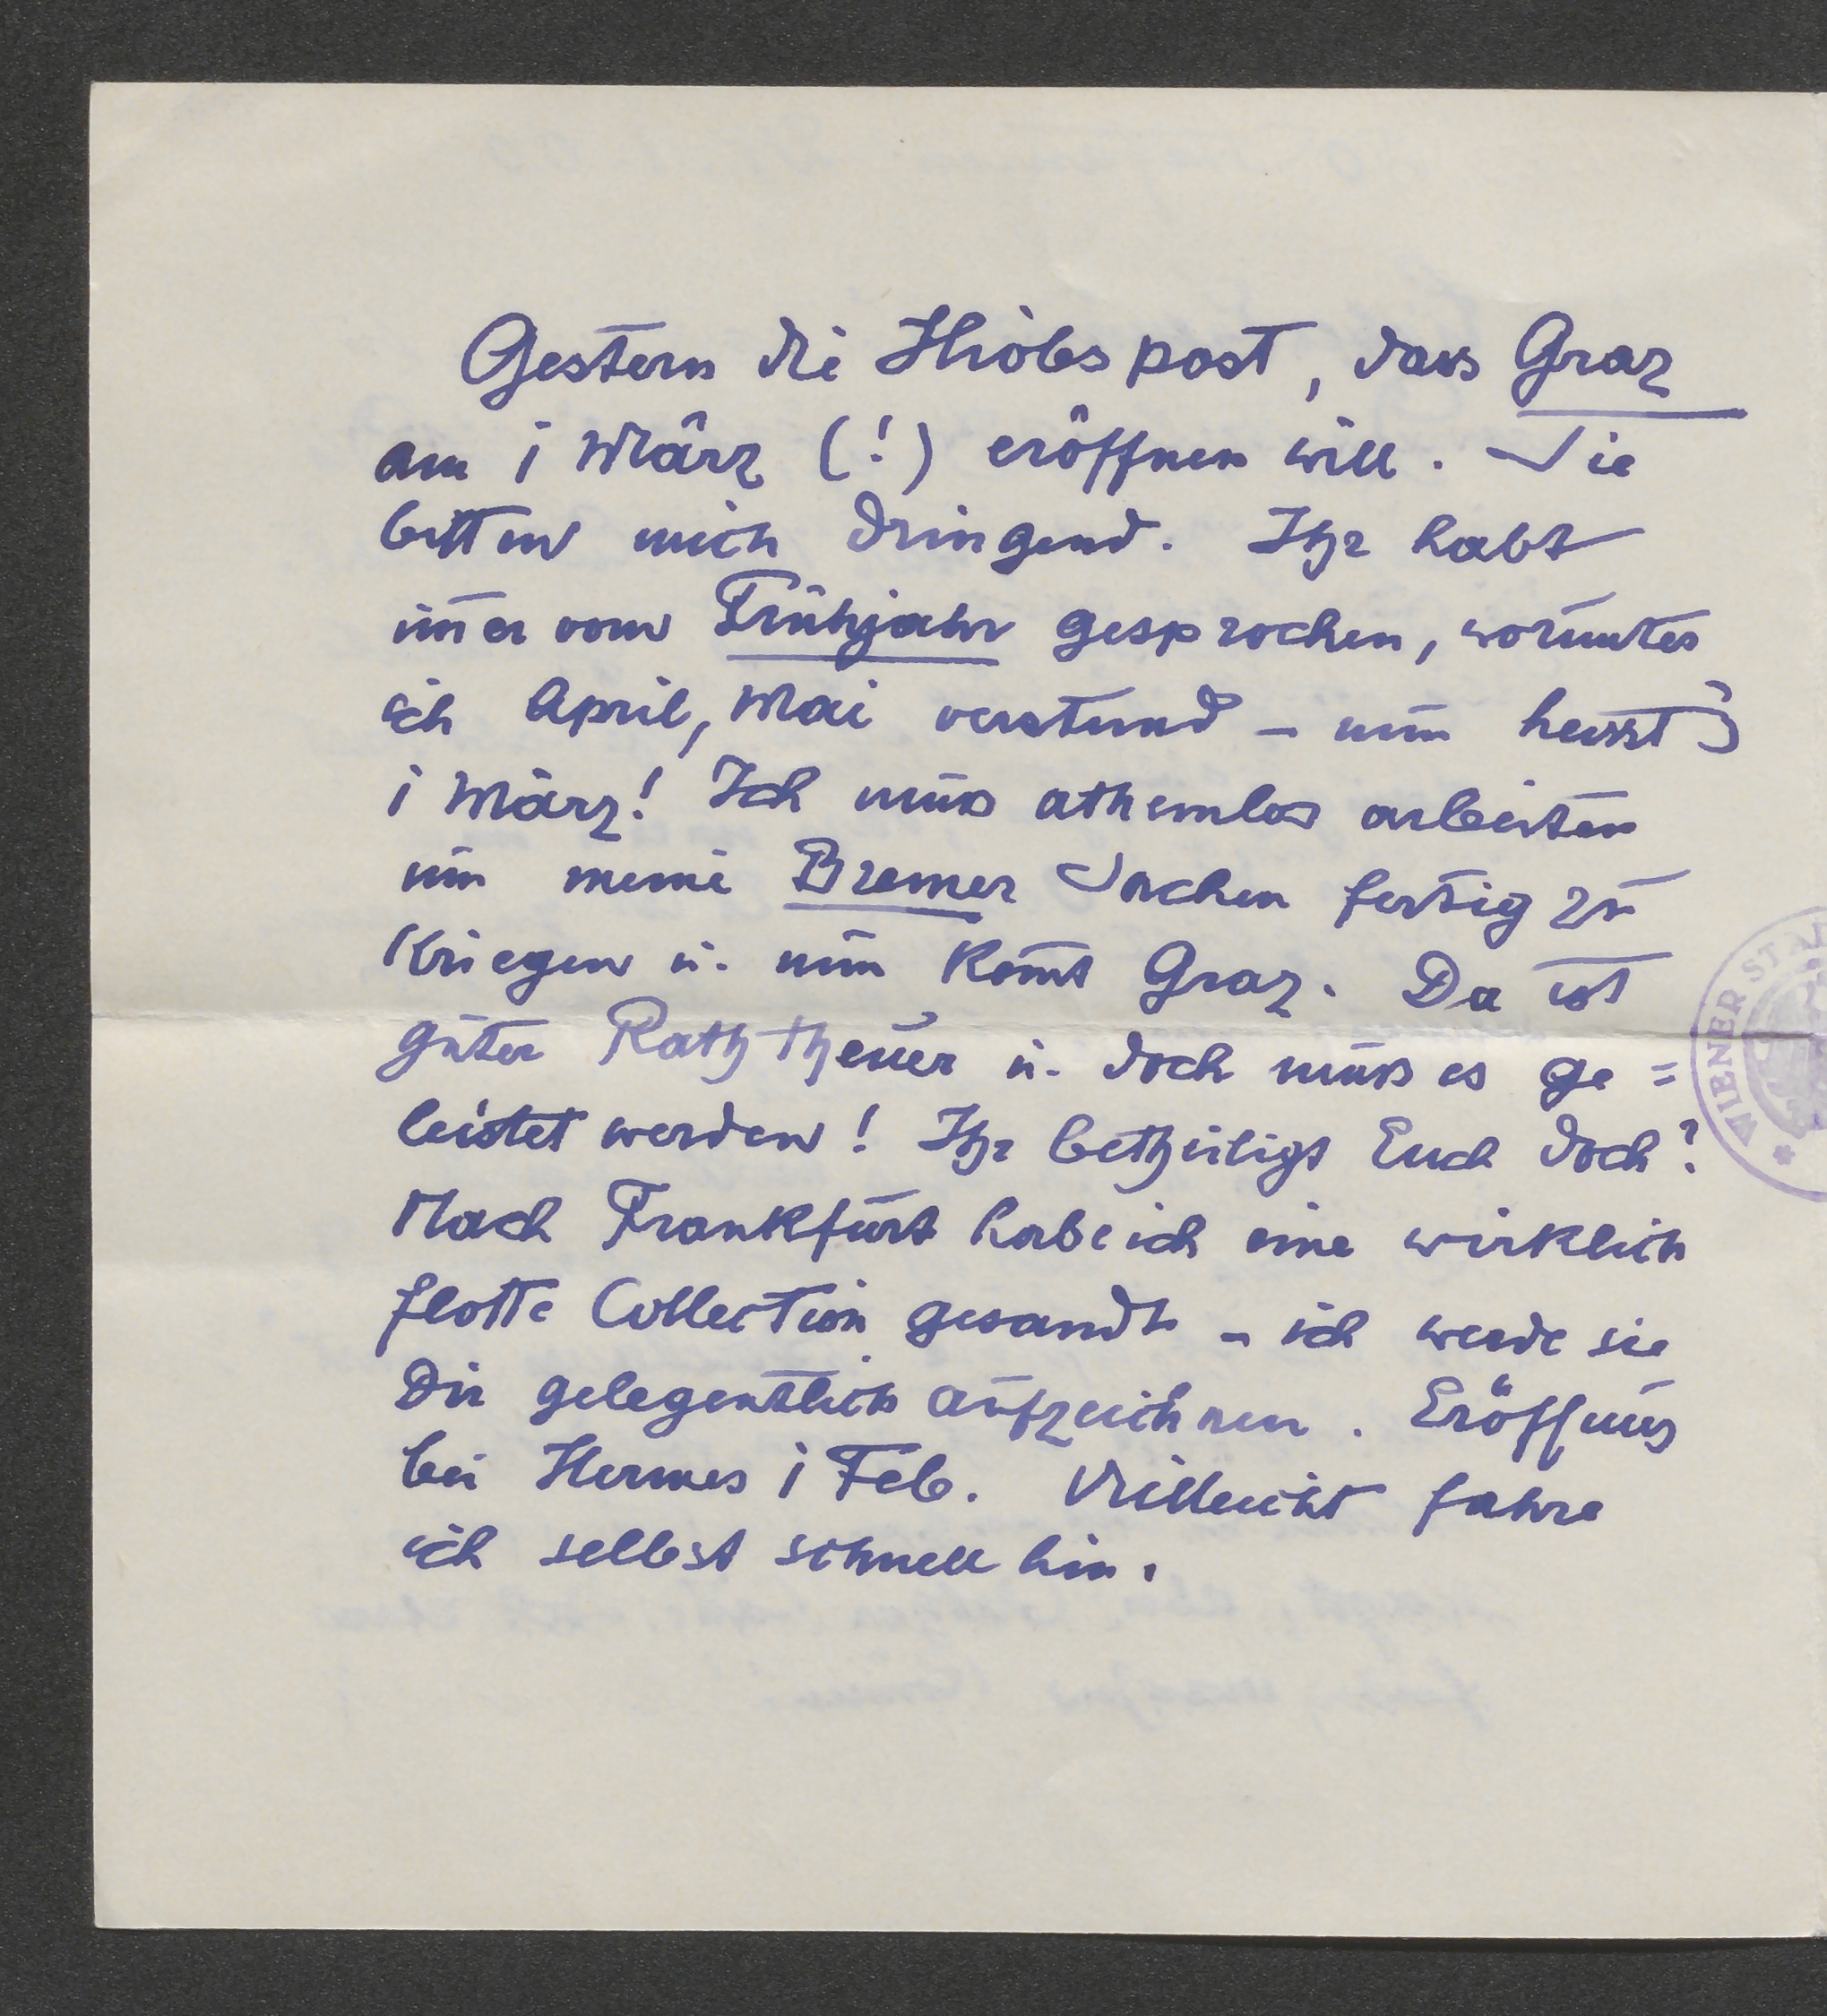 Gestern die Hiobspost, dass Graz
am 1 März (!) eröffnen will. Sie
bitten mich dringend. Ihr habt
im̅er vom Frühjahr gesprochen, worunter
ich April, Mai verstand – nun heisst's
1 März! Ich muss athemlos arbeiten
um meine Bremer Sachen fertig zu
kriegen u. nun kom̅t Graz. Da ist
guter Rath theuer u. doch muss es ge=
leistet werden! Ihr betheiligt Euch doch?
Nach Frankfurt habe ich eine wirklich
flotte Collection gesandt – ich werde sie
Dir gelegentlich aufzeichnen. Eröffnung
bei Hermes 1 Feb. Vielleicht fahre
ich selbst schnell hin.
WIENER STA